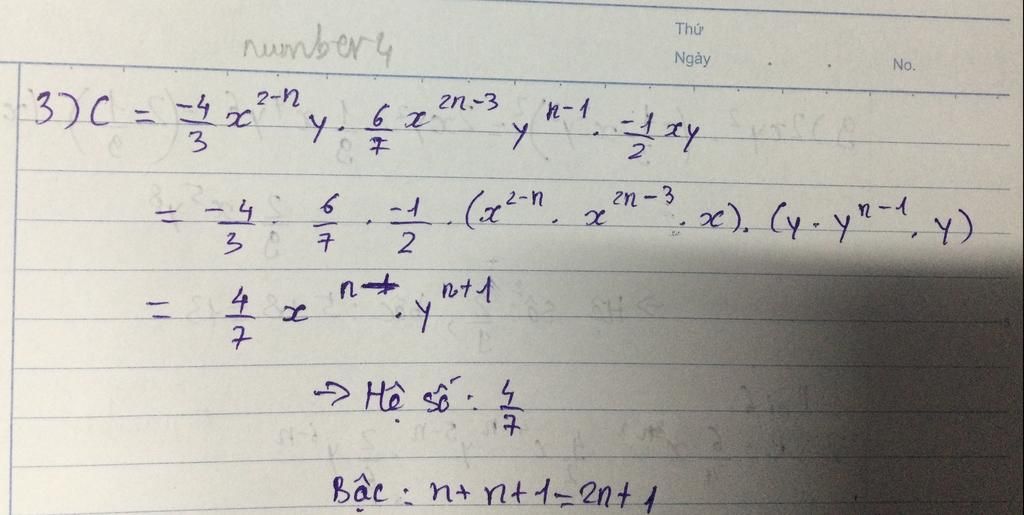 Thứ
number 4
Ngày
No.
3) C = \frac{-4}{3} x^{2-n} y . \frac{6}{7} x^{2n-3} y^{n-1} . \frac{-1}{2} xy
= \frac{-4}{3} . \frac{6}{7} . \frac{-1}{2} . (x^{2-n} . x^{2n-3} . x) . (y . y^{n-1} . y)
= \frac{4}{7} x^{n} . y^{n+1}
→ Hệ số : \frac{4}{7}
Bậc : n + n + 1 = 2n + 1